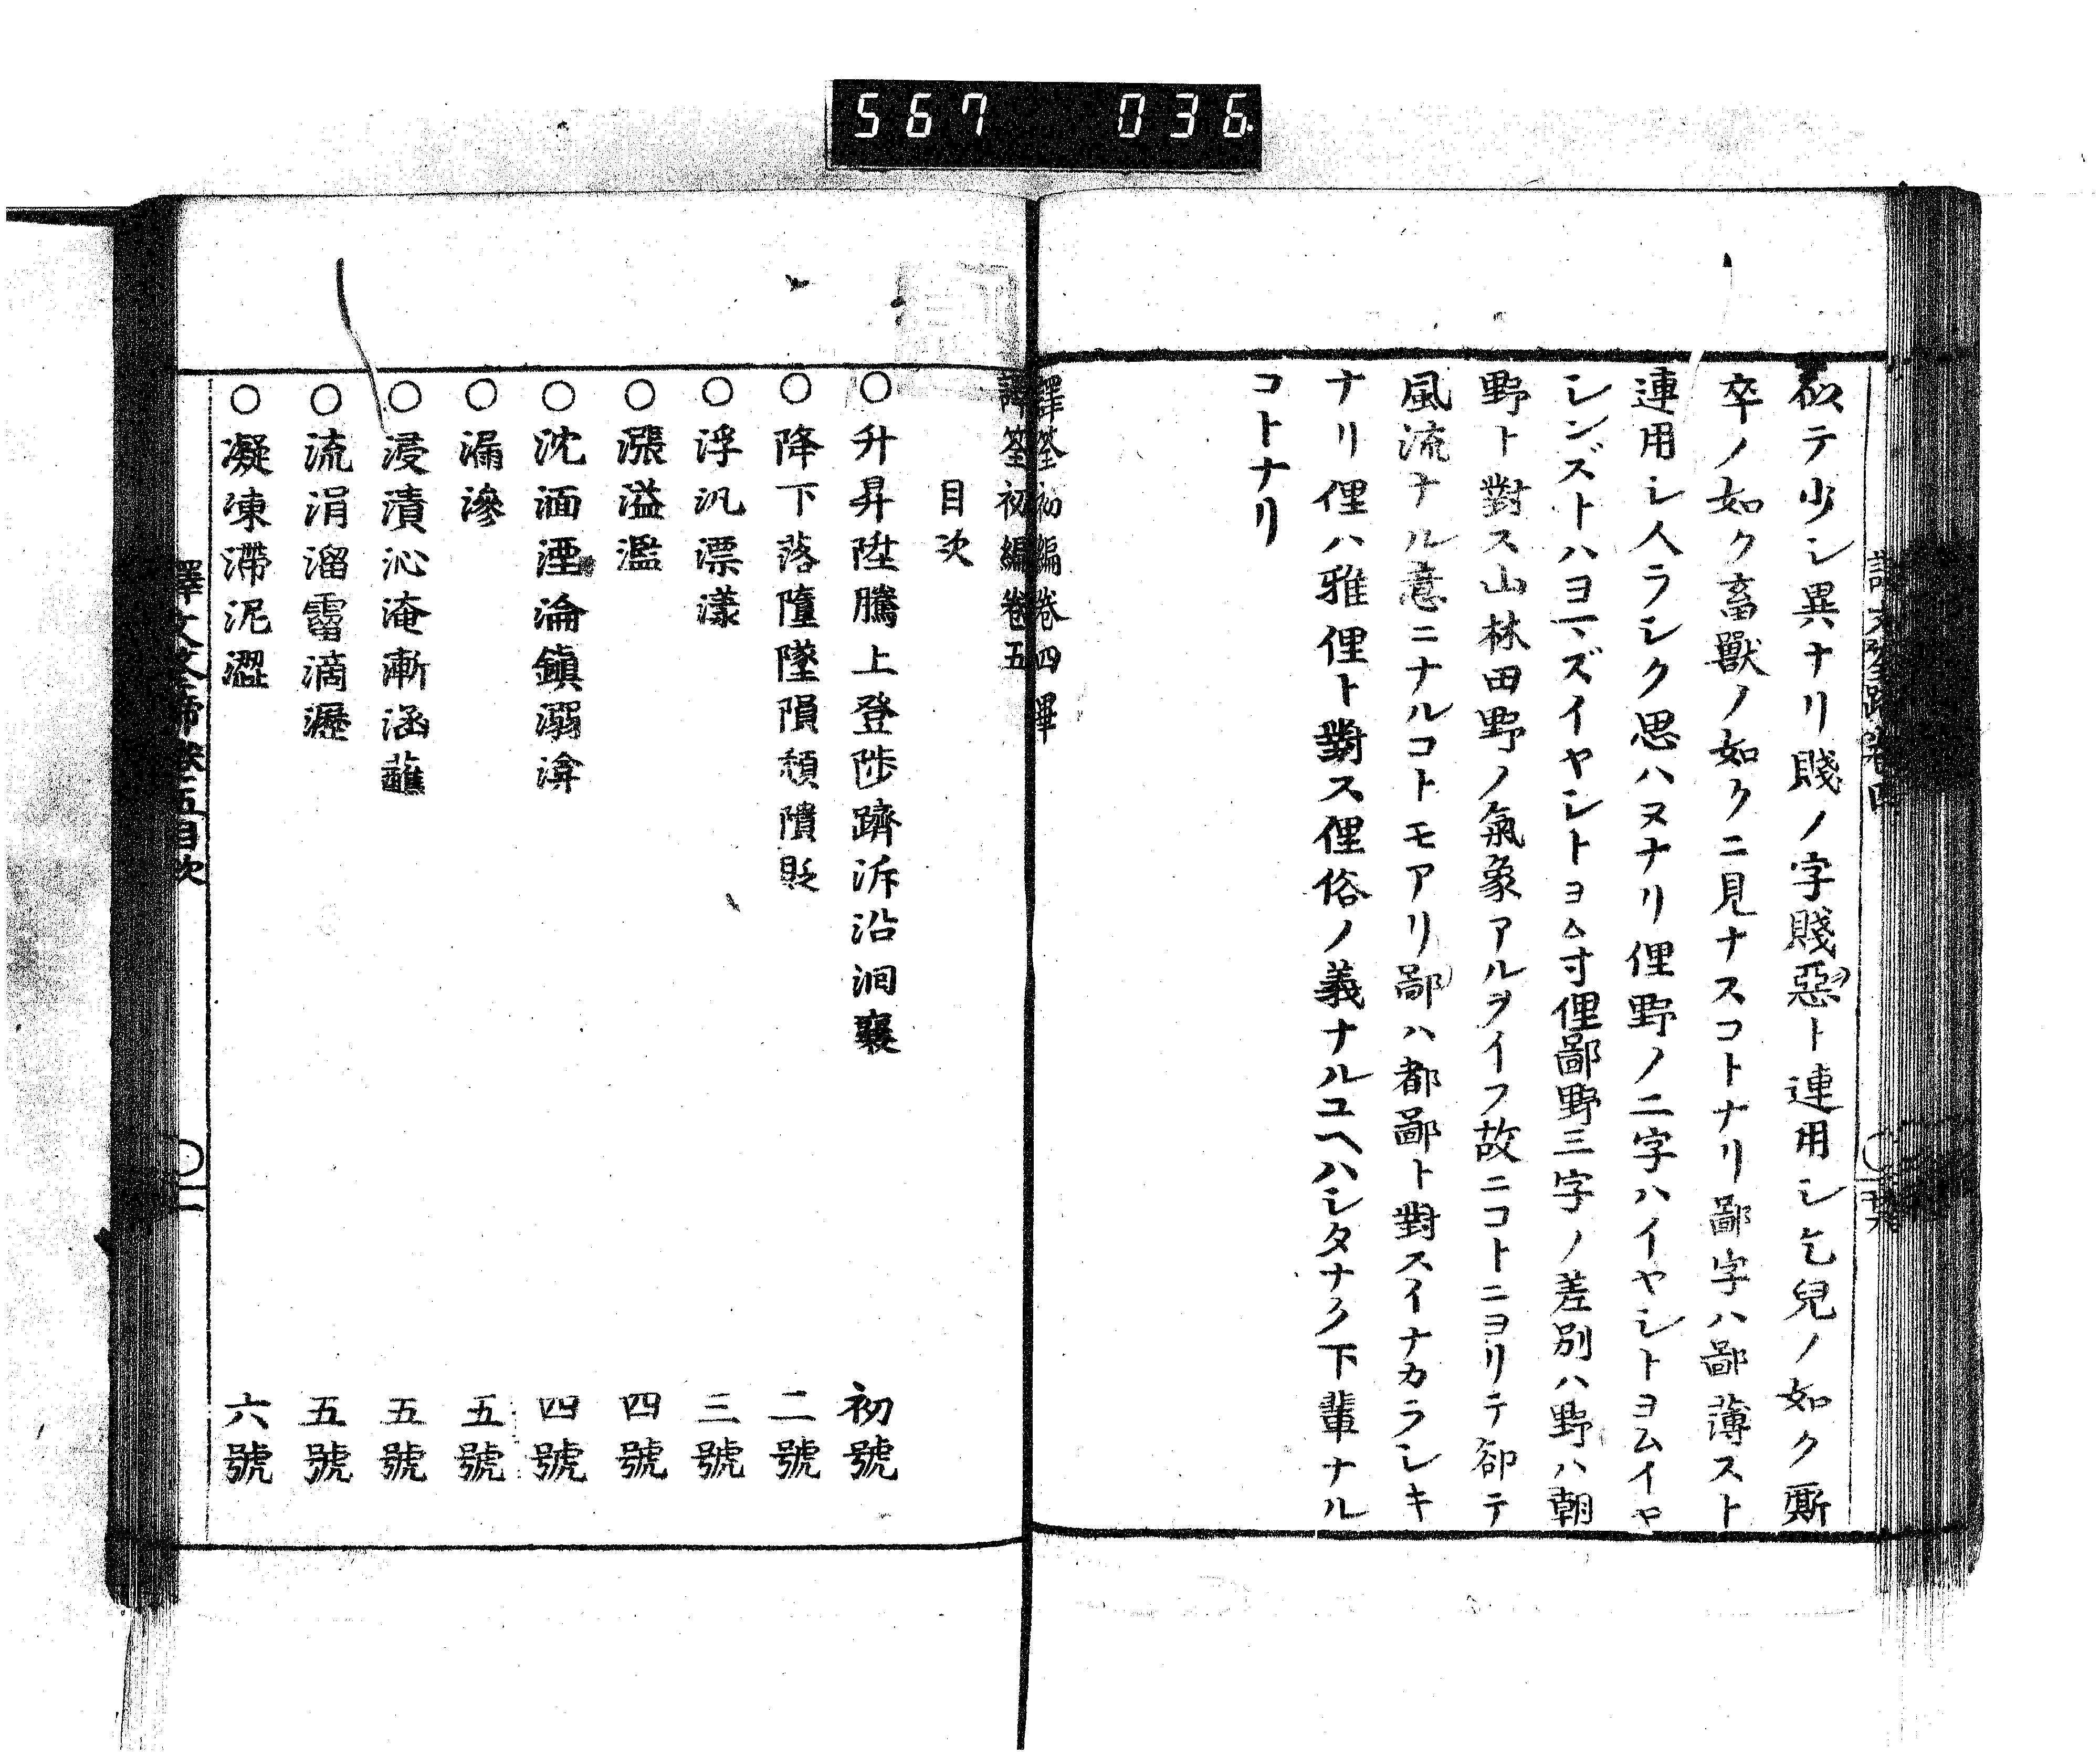 567 036
似テ少シ異ナリ賤ノ字賤惡ト連用シ乞兒ノ如ク厮
卒ノ如ク畜獸ノ如クニ見ナスコトナリ鄙字ハ鄙薄スト
連用シ人ラシク思ハヌナリ俚野ノ二字ハイヤシトヨムイヤ
シンズトハヨマズイヤシトヨム寸俚鄙野三字ノ差別ハ野ハ朝
野ト對ス山林田野ノ氣象アルヲイフ故ニコトニヨリテ卻テ
風流ナル意ニナルコトモアリ鄙ハ都鄙ト對スイナカラシキ
ナリ俚ハ雅俚ト對ス俚俗ノ義ナルユヘハシタナク下輩ナル
コトナリ
譯筌初編卷四畢
譯筌初編卷五
目次
○升昇陞騰上登陟躋泝沿洄襄 初號
○降下落墮墜隕頽隤貶 二號
○浮汎漂漾 三號
○漲溢濫 四號
○沈湎湮淪鎮溺渰 四號
○漏滲 五號
○浸漬沁淹漸涵蘸 五號
○流涓溜霤滴瀝 五號
○凝凍滯泥澀 六號
譯文筌蹄卷五目次